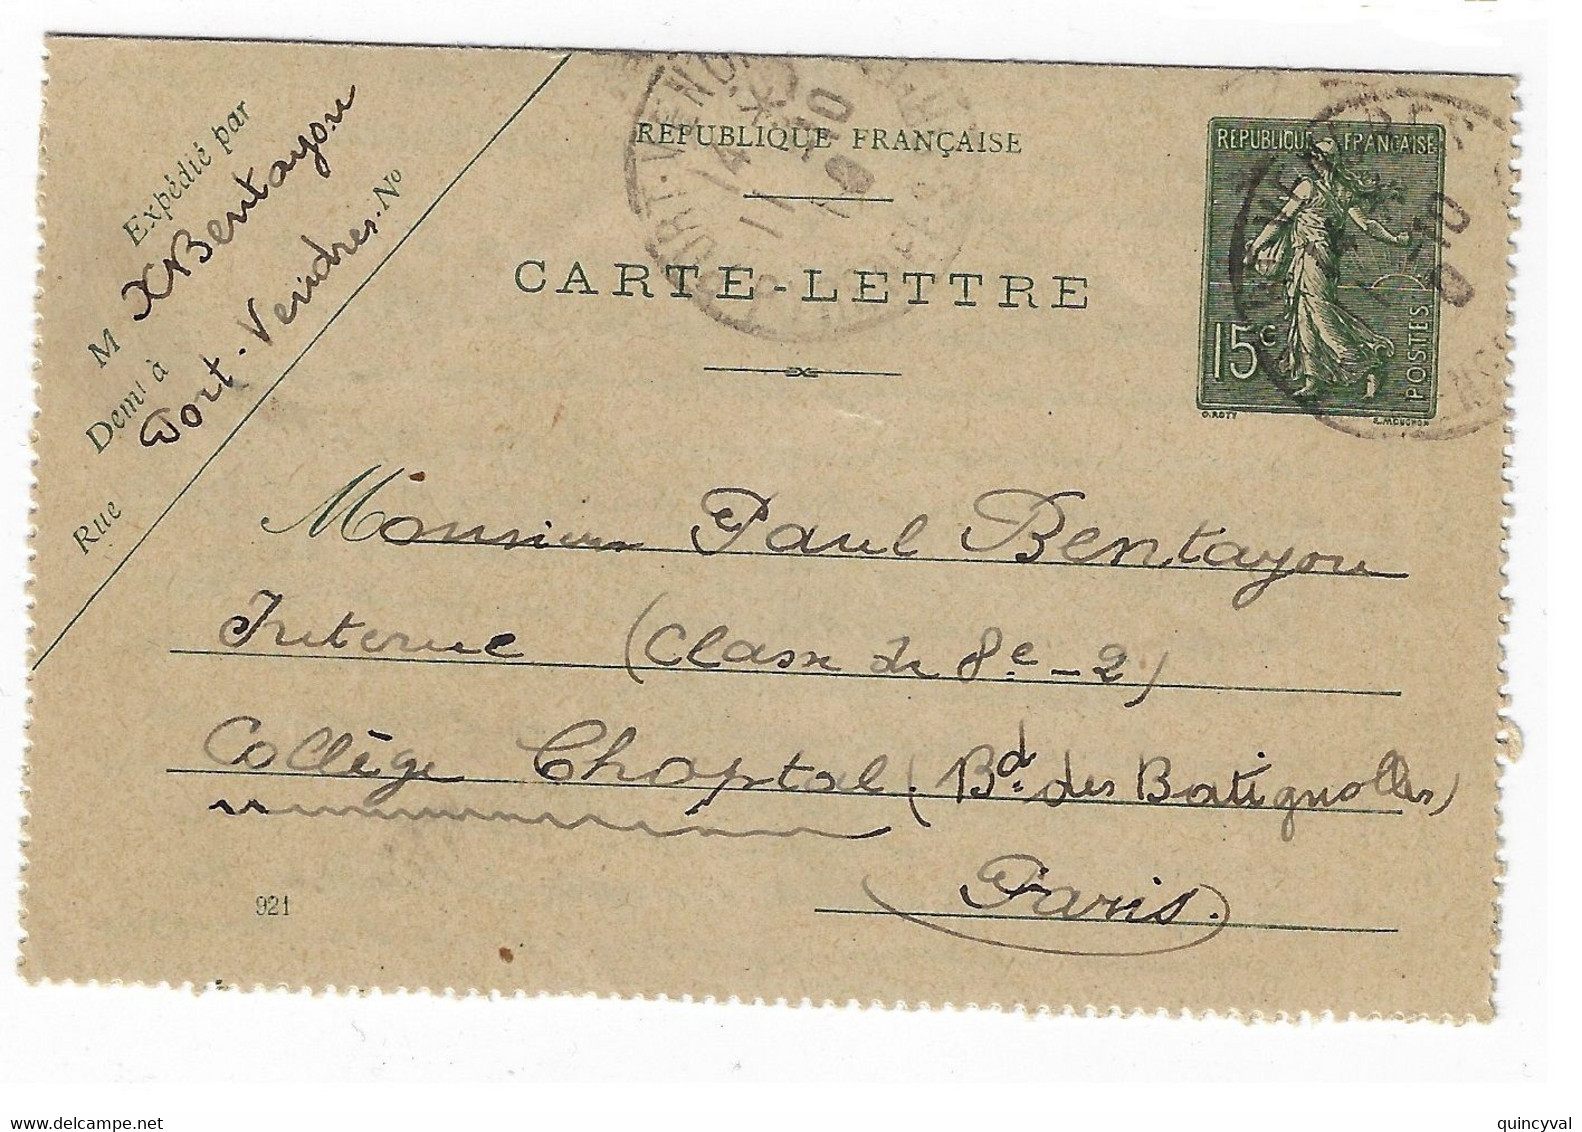 RÉPUBLIQUE FRANÇAISE
CARTE-LETTRE
Expédié par
M X Bentayou
Demt à Port-Vendres. No
Rue
REPUBLIQUE FRANÇAISE
15c
POSTES
O. ROTY
E. MOUCHON
PORT-VENDRES
14
11 10
19
Monsieur Paul Bentayou
Interne (Classe de 8e - 2)
Collège Chaptal (Bd. des Batignolles)
Paris.
921
quincyval